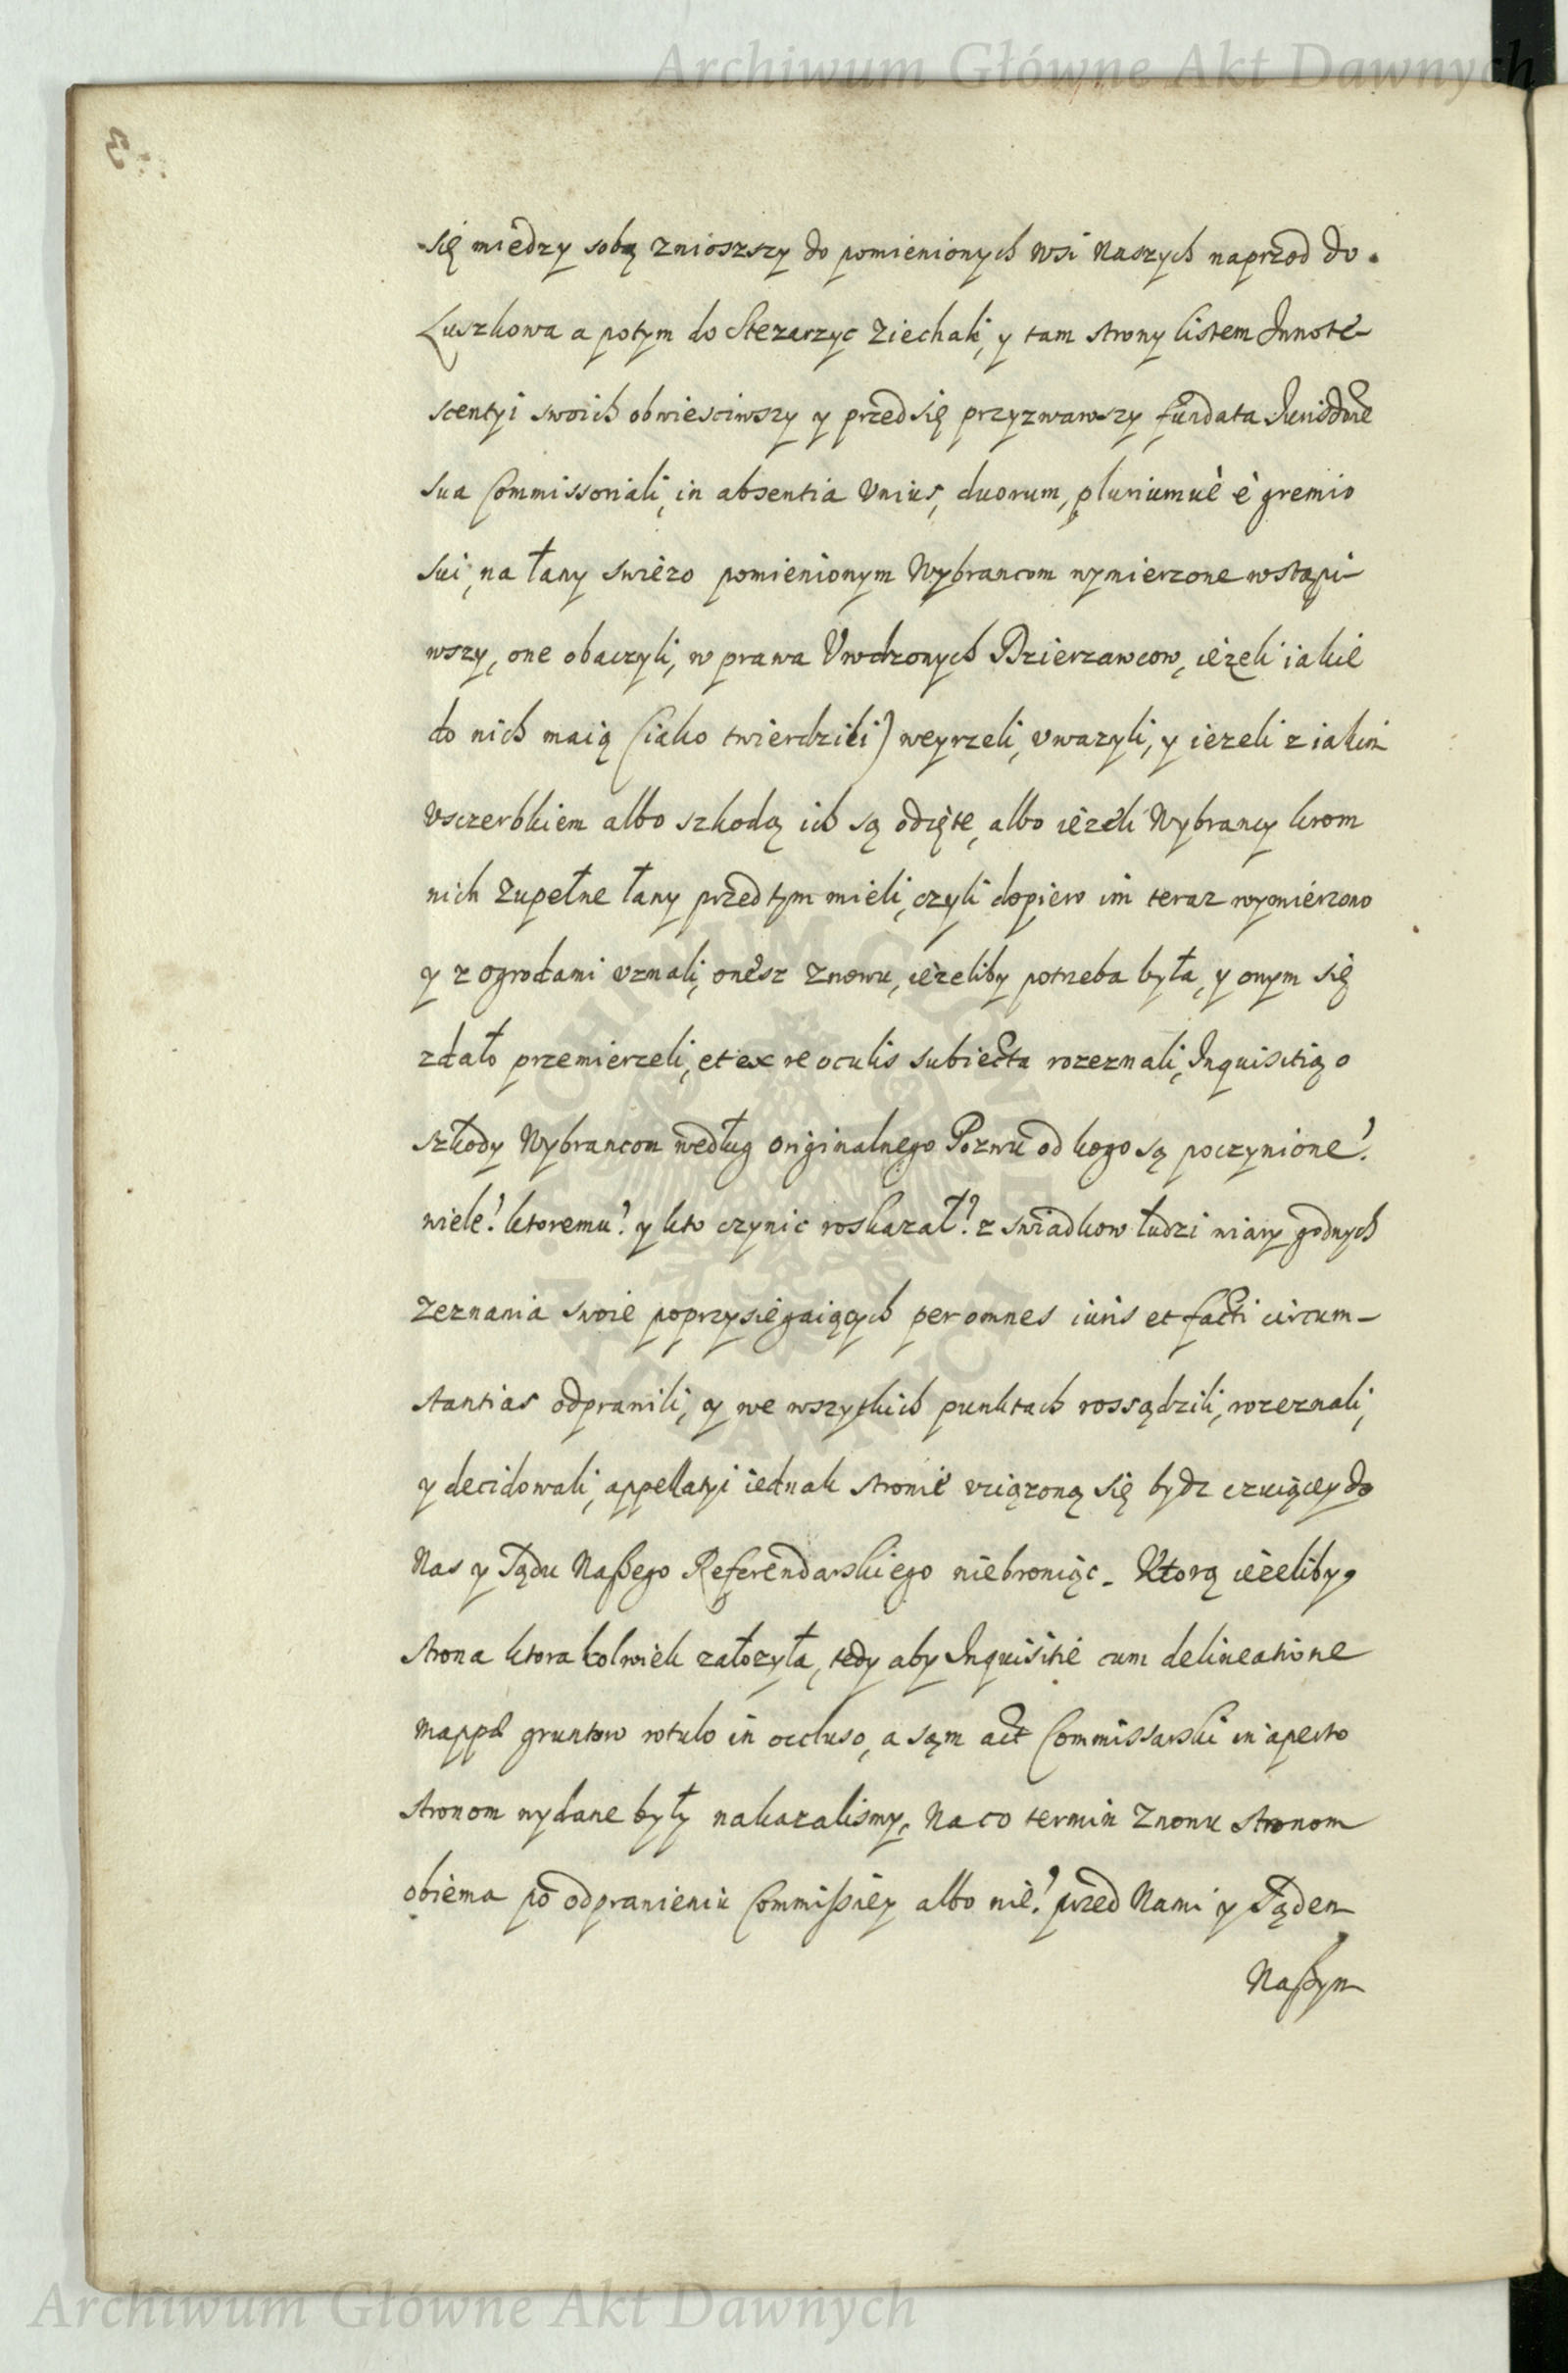 Archiwum Główne Akt Dawnych
się miedzy sobą znioszszy do pomienionych wsi Naszych naprzod do
Łuszkowa a potym do Stezarzyc ziechali, y tam strony listem Innote-
scentyi swoich obwiesciwszy y przed się przyzwawszy fundata Jurisdone
sua Commissoriali, in absentia Vnius, duorum, pluriumuè è gremio
sui, na łany swiezo pomienionym Wybrancom wymierzone wstąpi-
wszy, one obaczyli, w prawa Vwdzonych Dzierzawcow, ieżeli iakie
do nich maią (iako twierdzili) weyrzeli, vwazyli, y iezeli z iakim
vsczerbkiem albo szkodą ich są odięte, albo ieżeli Wybrancy krom
nich zupełne łany przedtym mieli, czyli dopiero im teraz wymierzono
y z ogrodami vznali, onesz znowu, ieżeliby potrzeba była, y onym się
zdało przemierzeli, et ex re oculis subiecta rozeznali, Inquisitią o
szkody Wybrancom według originalnego Pozwu od kogo są poczynione?
wiele? ktoremu? y kto czynic roskazał? z swiadkow ludzi wiary godnych
zeznania swoie poprzysięgaiących per omnes iuris et facti circum-
stantias odprawili, y we wszytkich punktach rossądzili, rozeznali,
y decidowali, appellatyi iednak stronie vciążoną się bydz czuiącey do
Nas y Sądu Naßego Referendarskiego niebroniąc. Ktorą ieżeliby
strona ktora kolwiek załozyła, tedy aby Inquisitie cum delineatione
mappæ gruntow rotulo in occluso, a sąm act Commissarski in aperto
stronom wydane były nakazalismy. Na co termin znowu stronom
obiema po odprawieniu Commißiey albo nie? przed Nami y Sądem
Naßym
Archiwum Główne Akt Dawnych